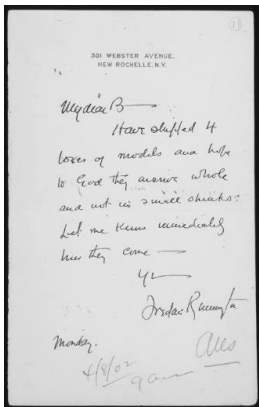 301 WEBSTER AVENUE.
NEW ROCHELLE, N.Y.
My dear B
Have shipped 4
boxes of models and hope
to God they arrive whole
and not in small chunks.
Let me know immediately
how they come —
Yr
Frederic Remington
Monday.
Ans
4/8/02